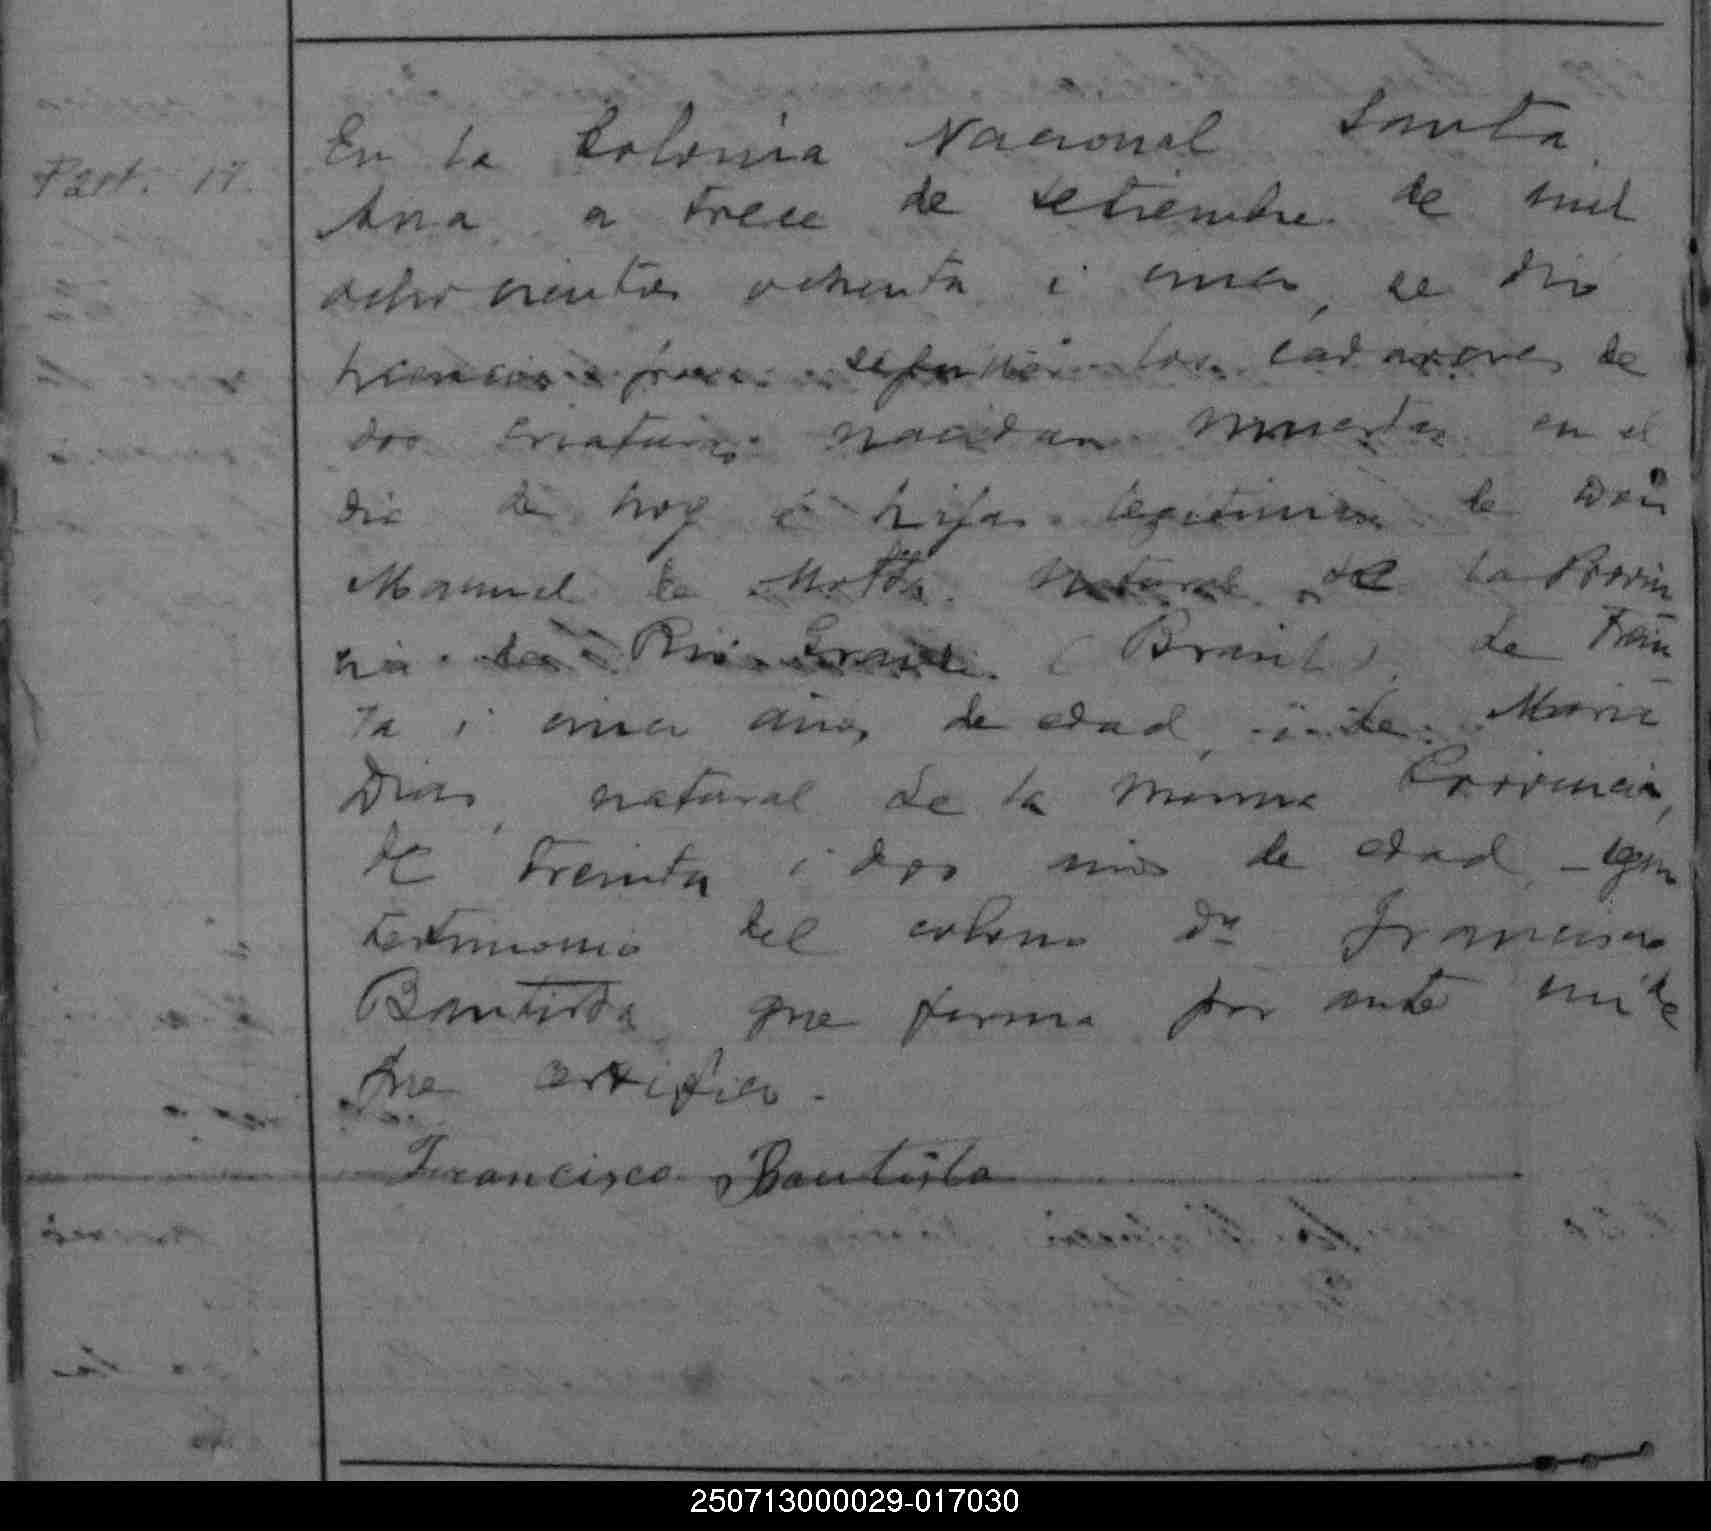 Part. 17.
En la Colonia Nacional Santa
Ana a trece de setiembre de mil
ochocientos ochenta i cinco, se dio
licencia para sepultar los cadaveres de
dos criaturas nacidas muertas en el
dia de hoy é hijas legitimas de Don
Manuel de Motta natural de la Provin
cia de Rio Grande (Brasil), de trein
ta i cinco años de edad, i de Maria
Dias, natural de la misma Provincia,
de treinta i dos años de edad, - segun
testimonio del colono Dn Francisco
Bautista que firma por ante mi de
que certifico.
Francisco Bautista
250713000029-017030